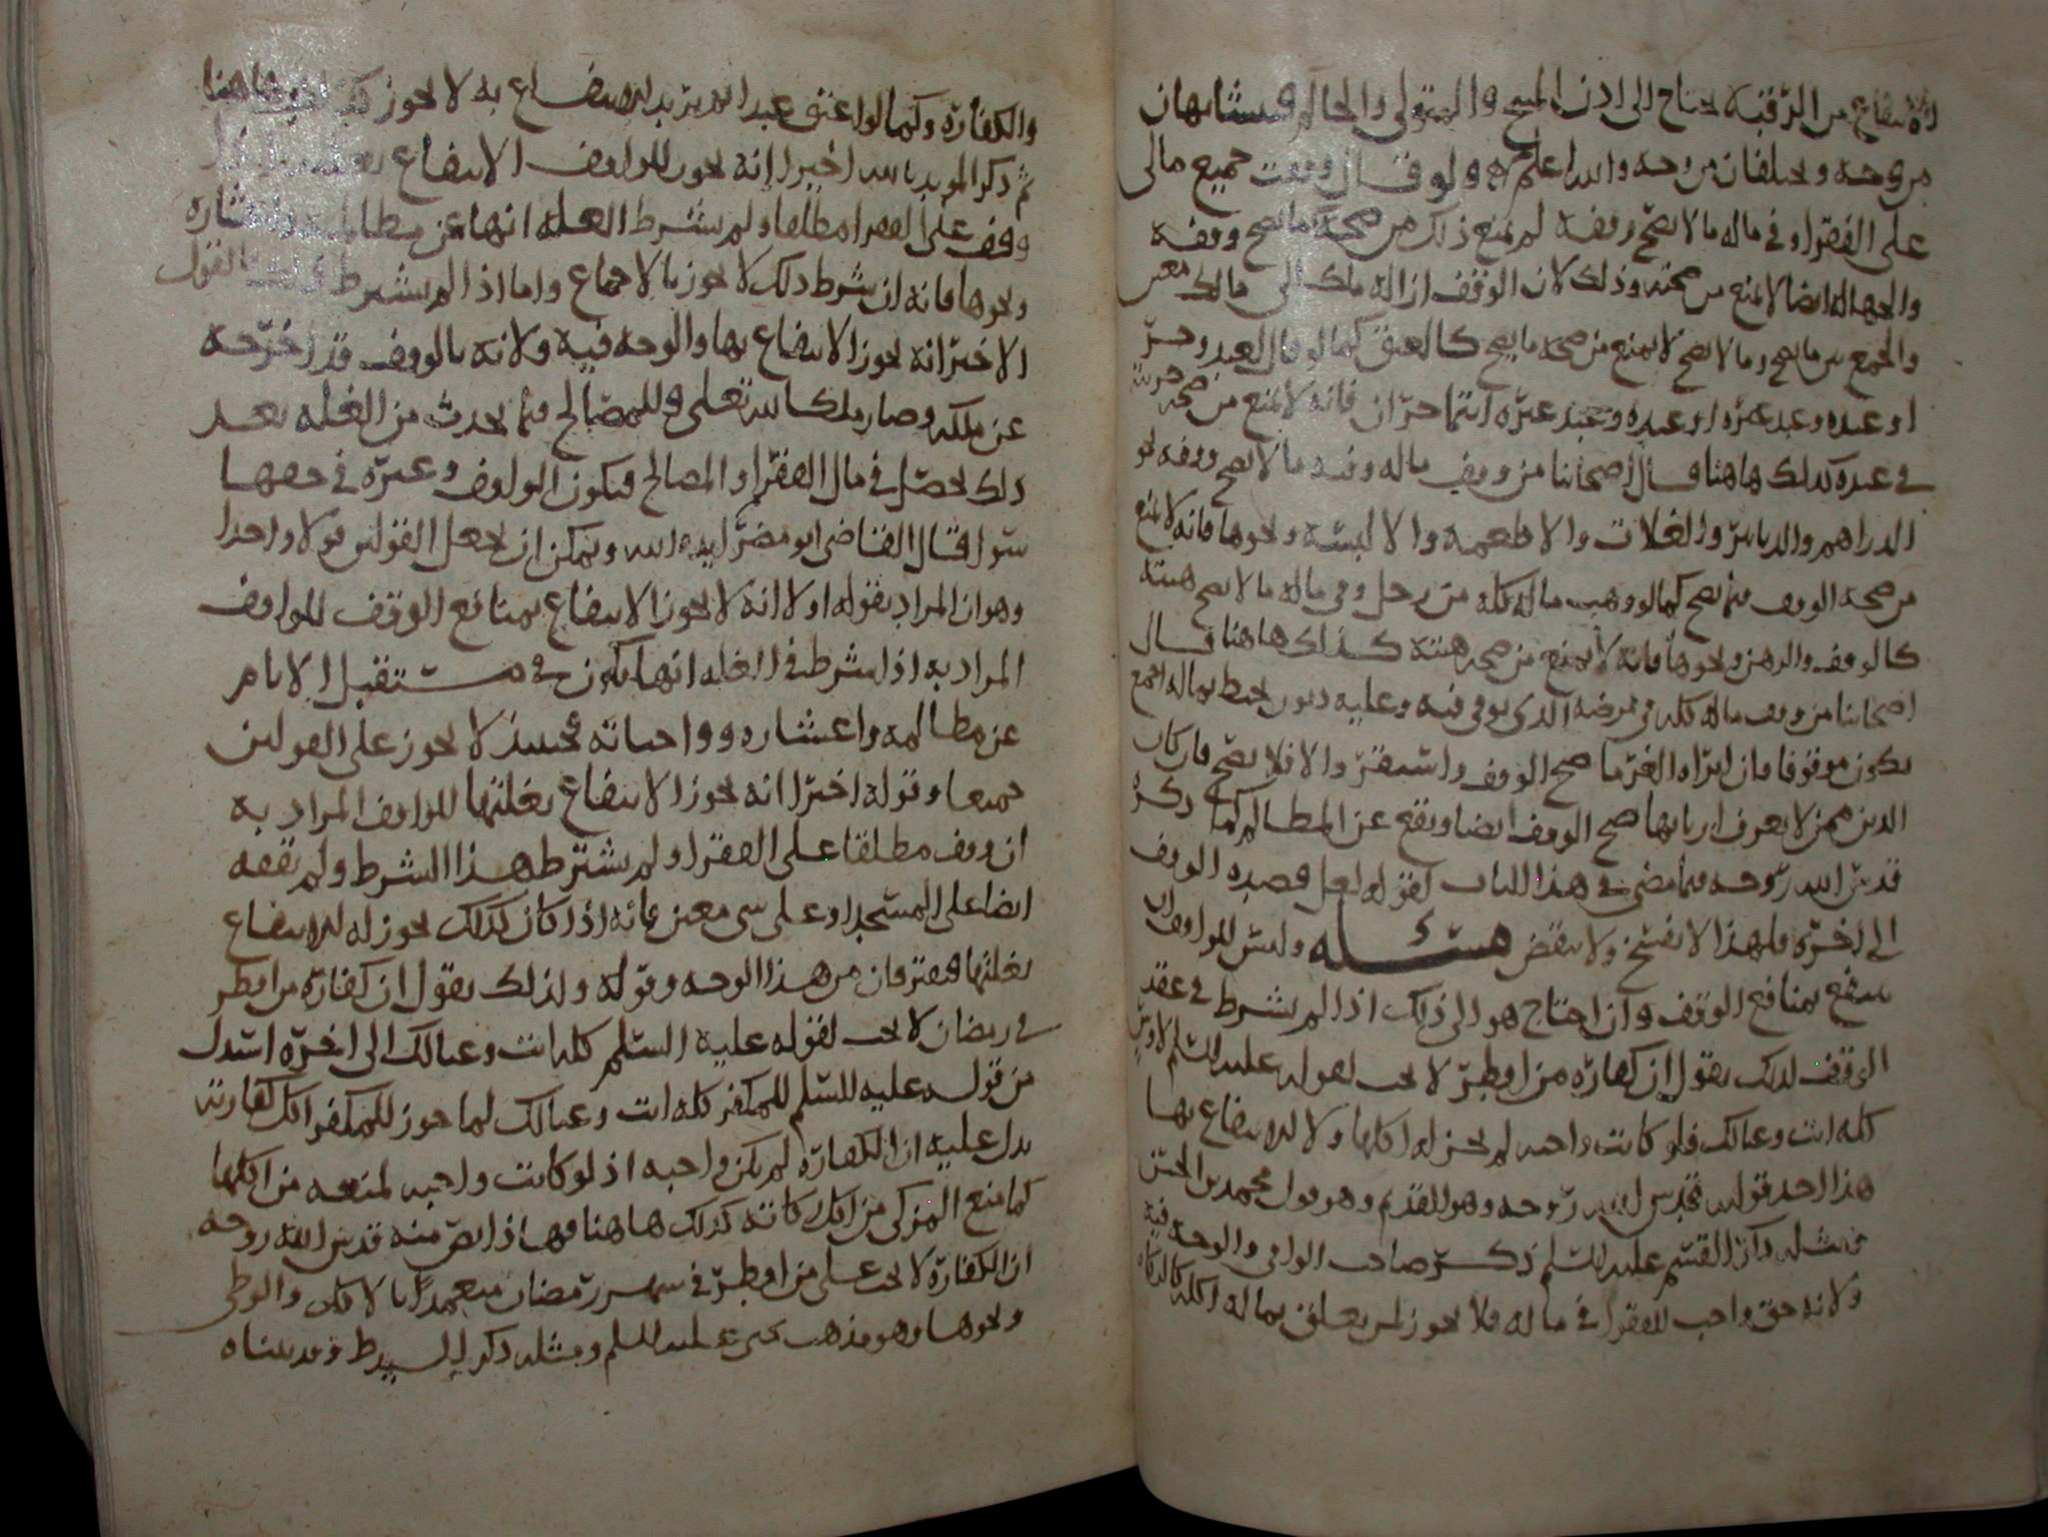 الانتفاع من الرقبة يحتاج الى اذن المبيح والمتولي والحال فيتشابهان
من وجه ويختلفان من وجه والله اعلم ولو قال وقفت جميع مالى
على الفقراء وفي ماله ما لا يصح وقفه لم يمنع ذلك من صحة ما يصح وقفه
والجهالة ايضا لا تمنع من صحته وذلك لان الوقف ازالة ملك الى مالك معين
والجمع بين ما يصح وما لا يصح لا يمنع من صحة ما يصح كالعتق كما لو قال لعبد وحر
او عبده وعبد غيره او عبده وعبد غيره انتما حران فانه لا يمنع من صحة حريته
في عبده كذلك هاهنا قال اصحابنا من وقف ماله وفيه ما لا يصح وقفه نحو
الدراهم والدنانير والغلات والاطعمة والالبسة ونحوها فانه لا يمنع
من صحة الوقف فيما يصح كما لو وهب ماله كله من رجل وفي ماله ما لا يصح هبته
كالوقف والرهن ونحوها فانه لا يمنع من صحة هبته كذلك هاهنا قال
اصحابنا من وقف ماله كله في مرضه الذي توفي فيه وعليه ديون تحيط بماله اجمع
يكون موقوفا فان ابراه الغرما صح الوقف واستقر والا فلا يصح فان كان
الدين ممن لا يعرف اربابها صح الوقف ايضا ويقع عن المظالم كما ذكره
قدس الله روحه فيما مضى في هذا الباب لقوله لعل قصده الوقف
الى اخره فلهذا لا يفسخ ولا ينقض مسئله وليس للواقف ان
ينتفع بمنافع الوقف وان احتاج هو الى ذلك اذا لم يشرط في عقد
الوقف لذلك يقول ان كفارة من افطر لا تجب لقوله عليه السلم
كله انت وعيالك فلو كانت واجبه لم يجز له اكلها ولا الانتفاع بها
هذا احد قوليه قدس الله روحه وهو القديم وهو قول محمد بن الحسن
في مسئله وان القسم عليه السلم ذكره صاحب الوافي والوجه فيه
ولانه حق واجب للفقراء في ماله فلا يجوز لمن يعلق بماله اكله كالزكاة
والكفارة وكما لو اعتق عبدا لم يرد الانتفاع به لا يجوز هاهنا
ثم ذكر المويد بالله اخيرا انه يجوز للواقف الانتفاع
وقف على الفقرا مطلقا ولم يشترط الغلة انها عن مظالمه واعشاره
ونحوها فانه ان شرط ذلك لا يجوز بالاجماع واما اذا لم يشرط القول
الاخر انه يجوز الانتفاع بها والوجه فيه ولانه بالوقف قد اخرجه
عن ملكه وصار ملكا لله تعلى وللمصالح فيما يحدث من الغلة بعد
ذلك يحصل في مال الفقرا والمصالح فيكون الواقف وغيره في حقها
سوا قال القاضي ابو مضر ايده الله ويمكن ان يجعل القولين قولا واحدا
وهو ان المراد بقوله اولا انه لا يجوز الانتفاع بمنافع الوقف للواقف
المراد به اذا شرط في الغلة انها تكون في مستقبل الايام
عن مظالمه واعشاره وواجباته فحينئذ لا يجوز على القولين
جميعا وقوله اخيرا انه يجوز الانتفاع بغلتها للواقف المراد به
ان وقف مطلقا على الفقرا ولم يشترط هذا الشرط ولم يقفه
ايضا على المسجد او على شى معين فانه اذا كان كذلك يجوز له الانتفاع
بغلتها فيفترقان من هذا الوجه وقوله ولذلك يقول ان كفارة من افطر
في رمضان لا تجب لقوله عليه السلم كله انت وعيالك الى اخره استدل
من قوله عليه السلم للمكفر كله انت وعيالك لما جوز للمكفر اكل كفارته
يدل عليه ان الكفارة لم تكن واجبه اذ لو كانت واجبه لمنعه من اكلها
كما منع المزكى من اكل زكاته كذلك هاهنا فهذا نص منه قدس الله روحه
ان الكفارة لا تجب على من افطر في شهر رمضان متعمدا بالاكل والوطي
ونحوها وهو مذهب يحيى عليه السلم ومثله ذكر السيد ط وقد بيناه